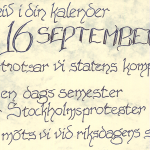 iv i din kalender
16 SEPTEMBER
motsar vi statens komp
en dags semester
Stockholmsprotester
möts vi vid riksdagens s